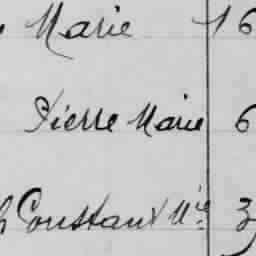 Marie 16
Pierre Marie 6
h Constant Mie 3